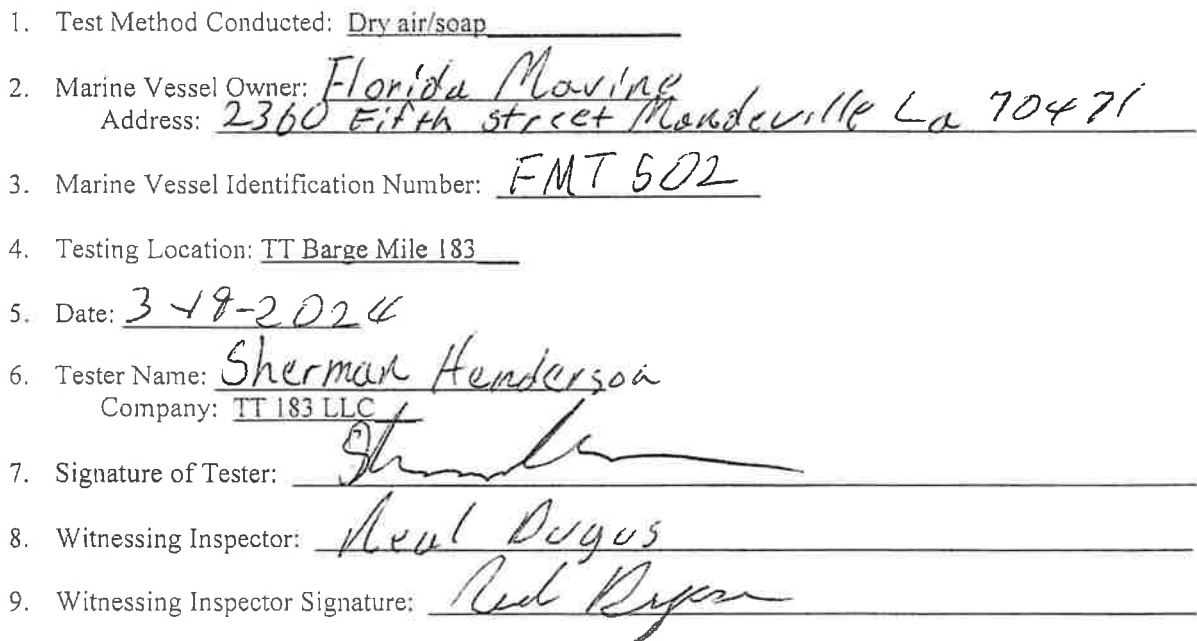 1. Test Method Conducted: Dry air/soap
2. Marine Vessel Owner: Florida Marine
Address: 2360 Fifth street Mandeville La 70471
3. Marine Vessel Identification Number: FMT 502
4. Testing Location: TT Barge Mile 183
5. Date: 3-19-2024
6. Tester Name: Sherman Henderson
Company: TT 183 LLC
7. Signature of Tester:
8. Witnessing Inspector: Neal Dugas
9. Witnessing Inspector Signature: